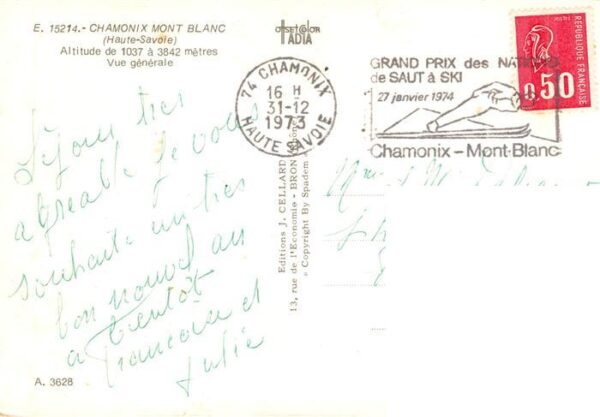 E. 15214.- CHAMONIX MONT BLANC
(Haute-Savoie)
Altitude de 1037 à 3842 mètres
Vue générale
OFFSET COLOR
IADIA
74 CHAMONIX
16 H
31-12
1973
HAUTE SAVOIE
GRAND PRIX des
de SAUT à SKI
27 janvier 1974
Chamonix - Mont-Blanc
POSTES
0,50
REPUBLIQUE FRANÇAISE
Séjour très
agréable je vous
souhaite un très
bon nouvel an
a bientôt
Francoise et
Julie
Editions J. CELLARD
13, rue de l'Economie - BRON
« Copyright By Spadem »
A. 3628